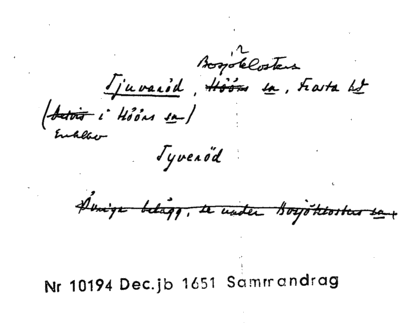 Bosjöklosters
Tjuvaröd, Höörs sn, Frosta hd
(delvis i Höörs sn)
Enklav
Tyveröd
Övriga belägg, se under Bosjöklosters sn.
Nr 10194 Dec.jb 1651 Sammandrag